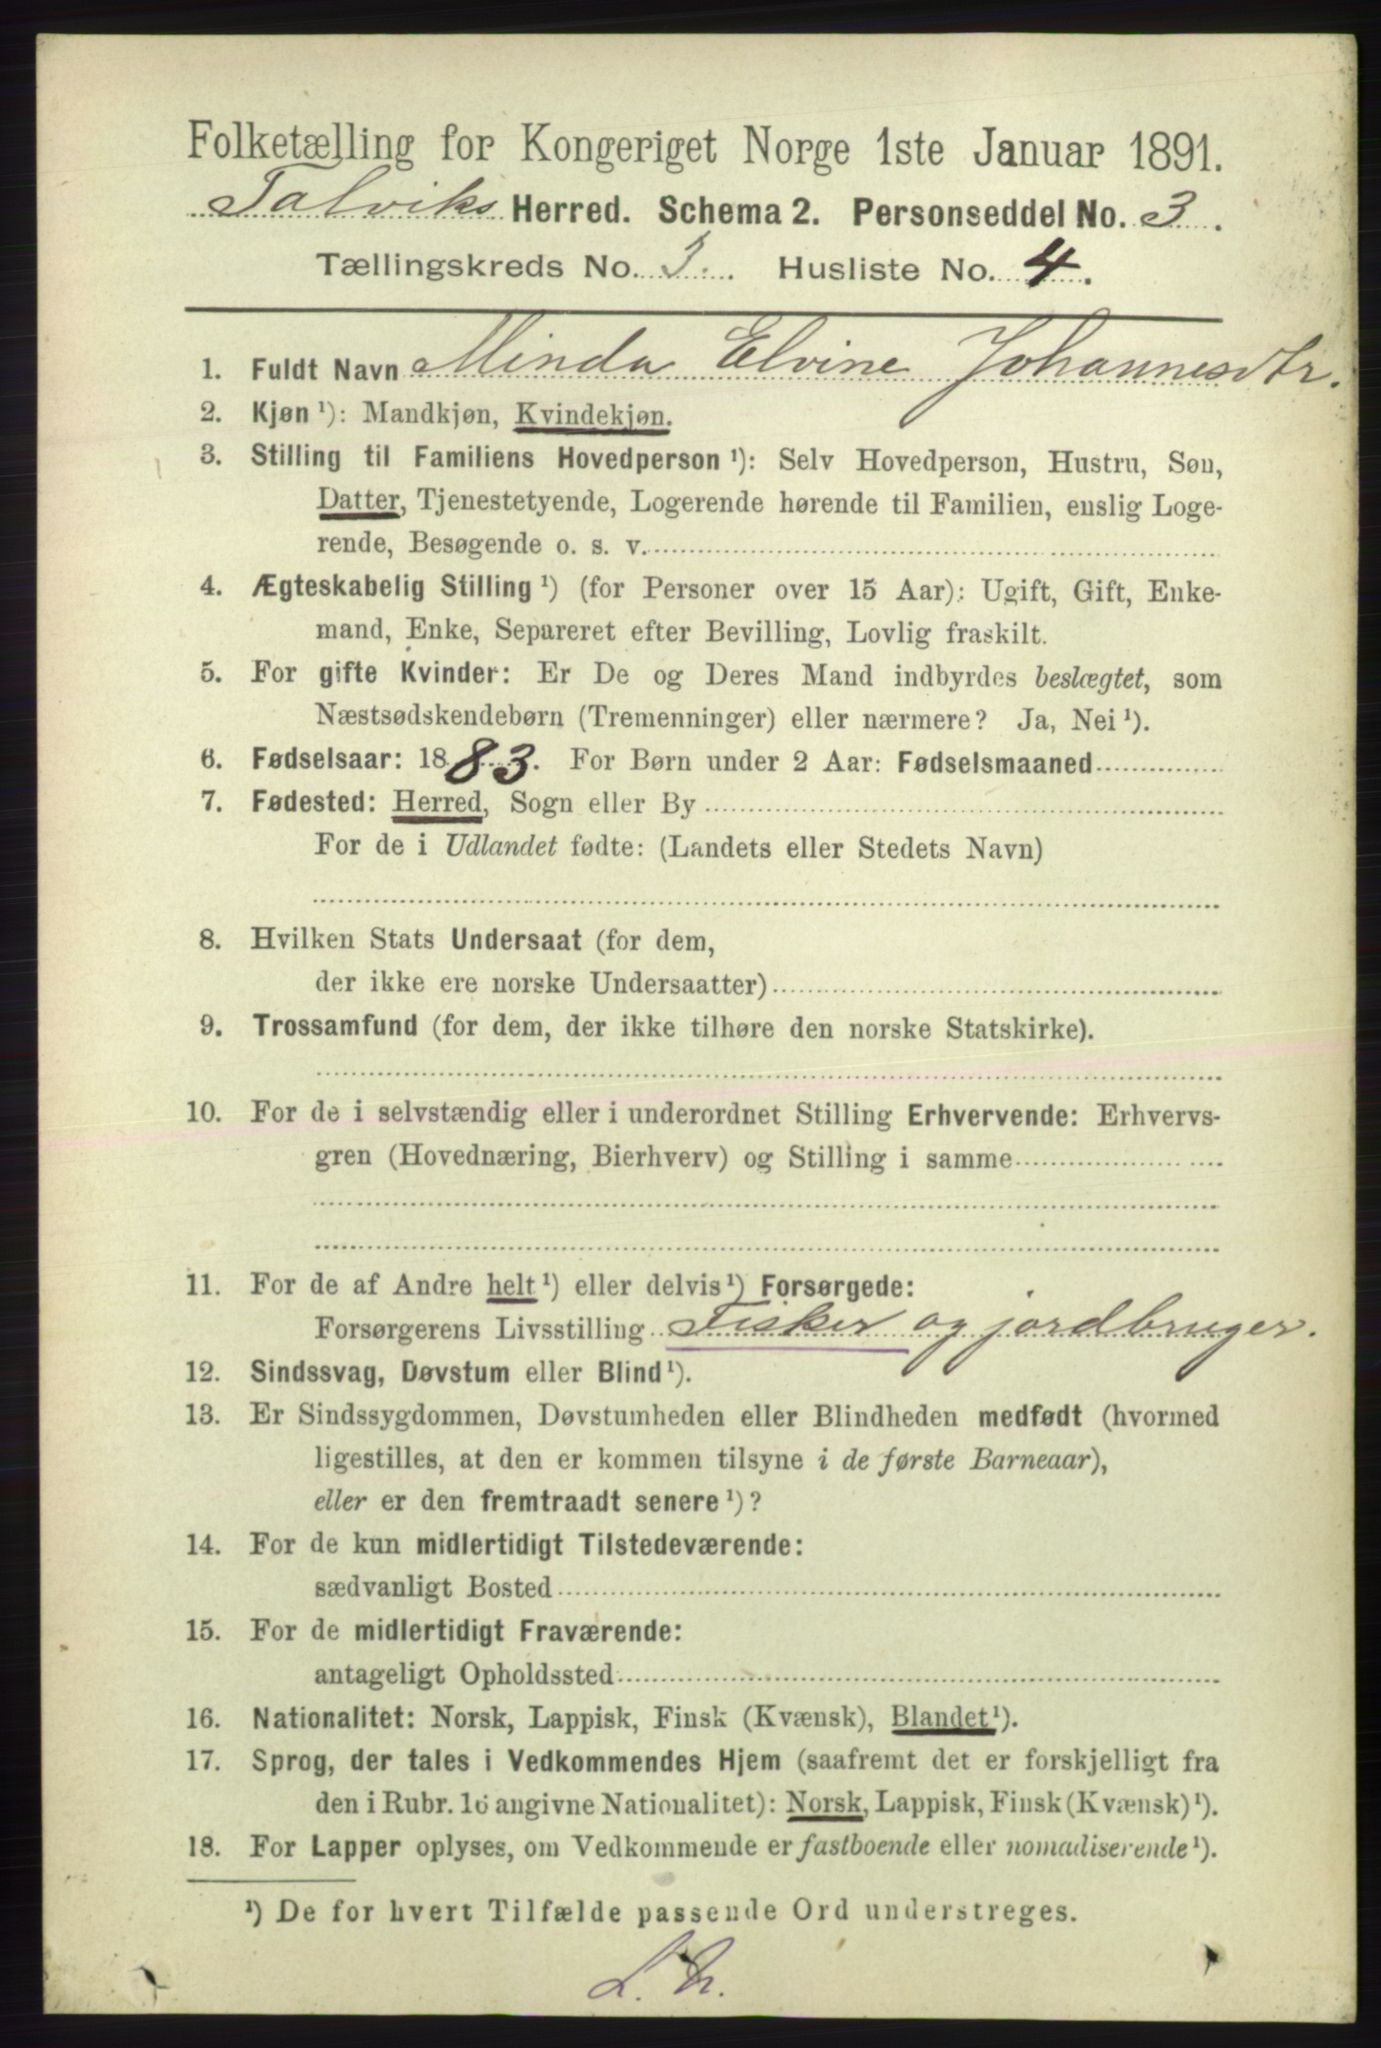 Folketælling for Kongeriget Norge 1ste Januar 1891.
Talviks Herred. Schema 2. Personseddel No. 3.
Tællingskreds No. 3. Husliste No. 4.
1. Fuldt Navn Minda Elvine Johannesdtr.
2. Kjøn ¹): Mandkjøn, Kvindekjøn.
3. Stilling til Familiens Hovedperson ¹): Selv Hovedperson, Hustru, Søn,
Datter, Tjenestetyende, Logerende hørende til Familien, enslig Loge-
rende, Besøgende o. s. v.
4. Ægteskabelig Stilling ¹) (for Personer over 15 Aar): Ugift, Gift, Enke-
mand, Enke, Separeret efter Bevilling, Lovlig fraskilt.
5. For gifte Kvinder: Er De og Deres Mand indbyrdes beslægtet, som
Næstsødskendebørn (Tremenninger) eller nærmere? Ja, Nei ¹).
6. Fødselsaar: 1883. For Børn under 2 Aar: Fødselsmaaned
7. Fødested: Herred, Sogn eller By
For de i Udlandet fødte: (Landets eller Stedets Navn)
8. Hvilken Stats Undersaat (for dem,
der ikke ere norske Undersaatter)
9. Trossamfund (for dem, der ikke tilhøre den norske Statskirke).
10. For de i selvstændig eller i underordnet Stilling Erhvervende: Erhvervs-
gren (Hovednæring, Bierhverv) og Stilling i samme
11. For de af Andre helt ¹) eller delvis ¹) Forsørgede:
Forsørgerens Livsstilling Fisker og jordbruger.
12. Sindssvag, Døvstum eller Blind ¹).
13. Er Sindssygdommen, Døvstumheden eller Blindheden medfødt (hvormed
ligestilles, at den er kommen tilsyne i de første Barneaar),
eller er den fremtraadt senere ¹)?
14. For de kun midlertidigt Tilstedeværende:
sædvanligt Bosted
15. For de midlertidigt Fraværende:
antageligt Opholdssted
16. Nationalitet: Norsk, Lappisk, Finsk (Kvænsk), Blandet ¹).
17. Sprog, der tales i Vedkommendes Hjem (saafremt det er forskjelligt fra
den i Rubr. 16 angivne Nationalitet): Norsk, Lappisk, Finsk (Kvænsk) ¹).
18. For Lapper oplyses, om Vedkommende er fastboende eller nomadiserende ¹).
¹) De for hvert Tilfælde passende Ord understreges.